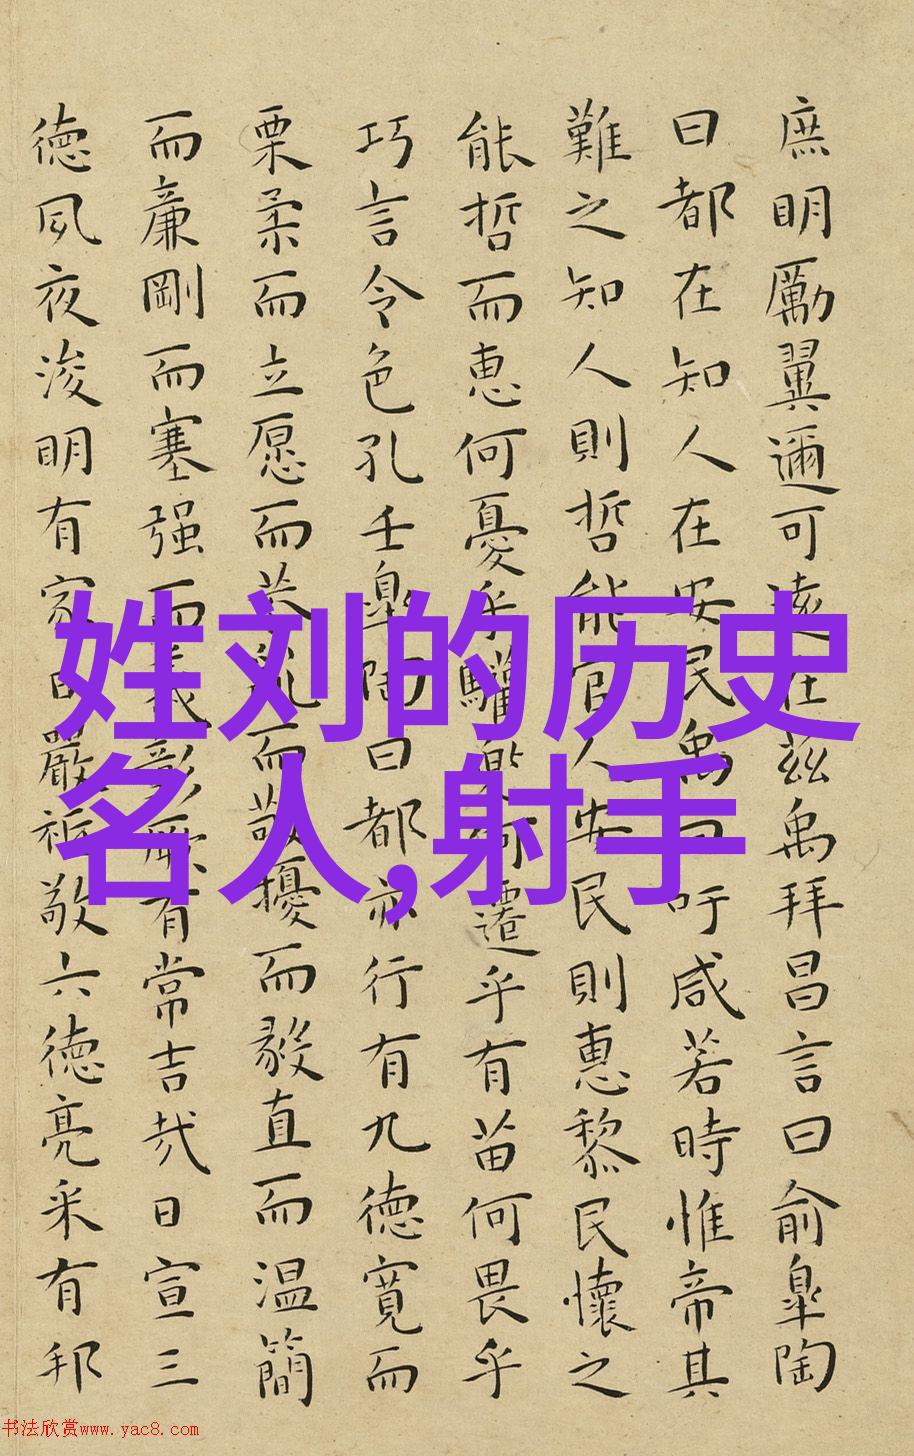 庶明厲翼邇可遠在茲禹拜昌言曰俞皐陶
曰都在知人在安民禹曰吁咸若時惟帝其
難之知人則哲能官人安民則惠黎民懷之
能哲而惠何憂乎驩兜何遷乎有苗何畏乎
巧言令色孔壬皐陶曰都亦行有九德寛而
栗柔而立愿而恭亂而敬擾而毅直而温簡
而廉剛而塞强而義彰厥有常吉哉日宣三
德夙夜浚明有家日嚴祗敬六德亮采有邦
姓刘的历史
名人,射手
书法欣赏www.yac8.com